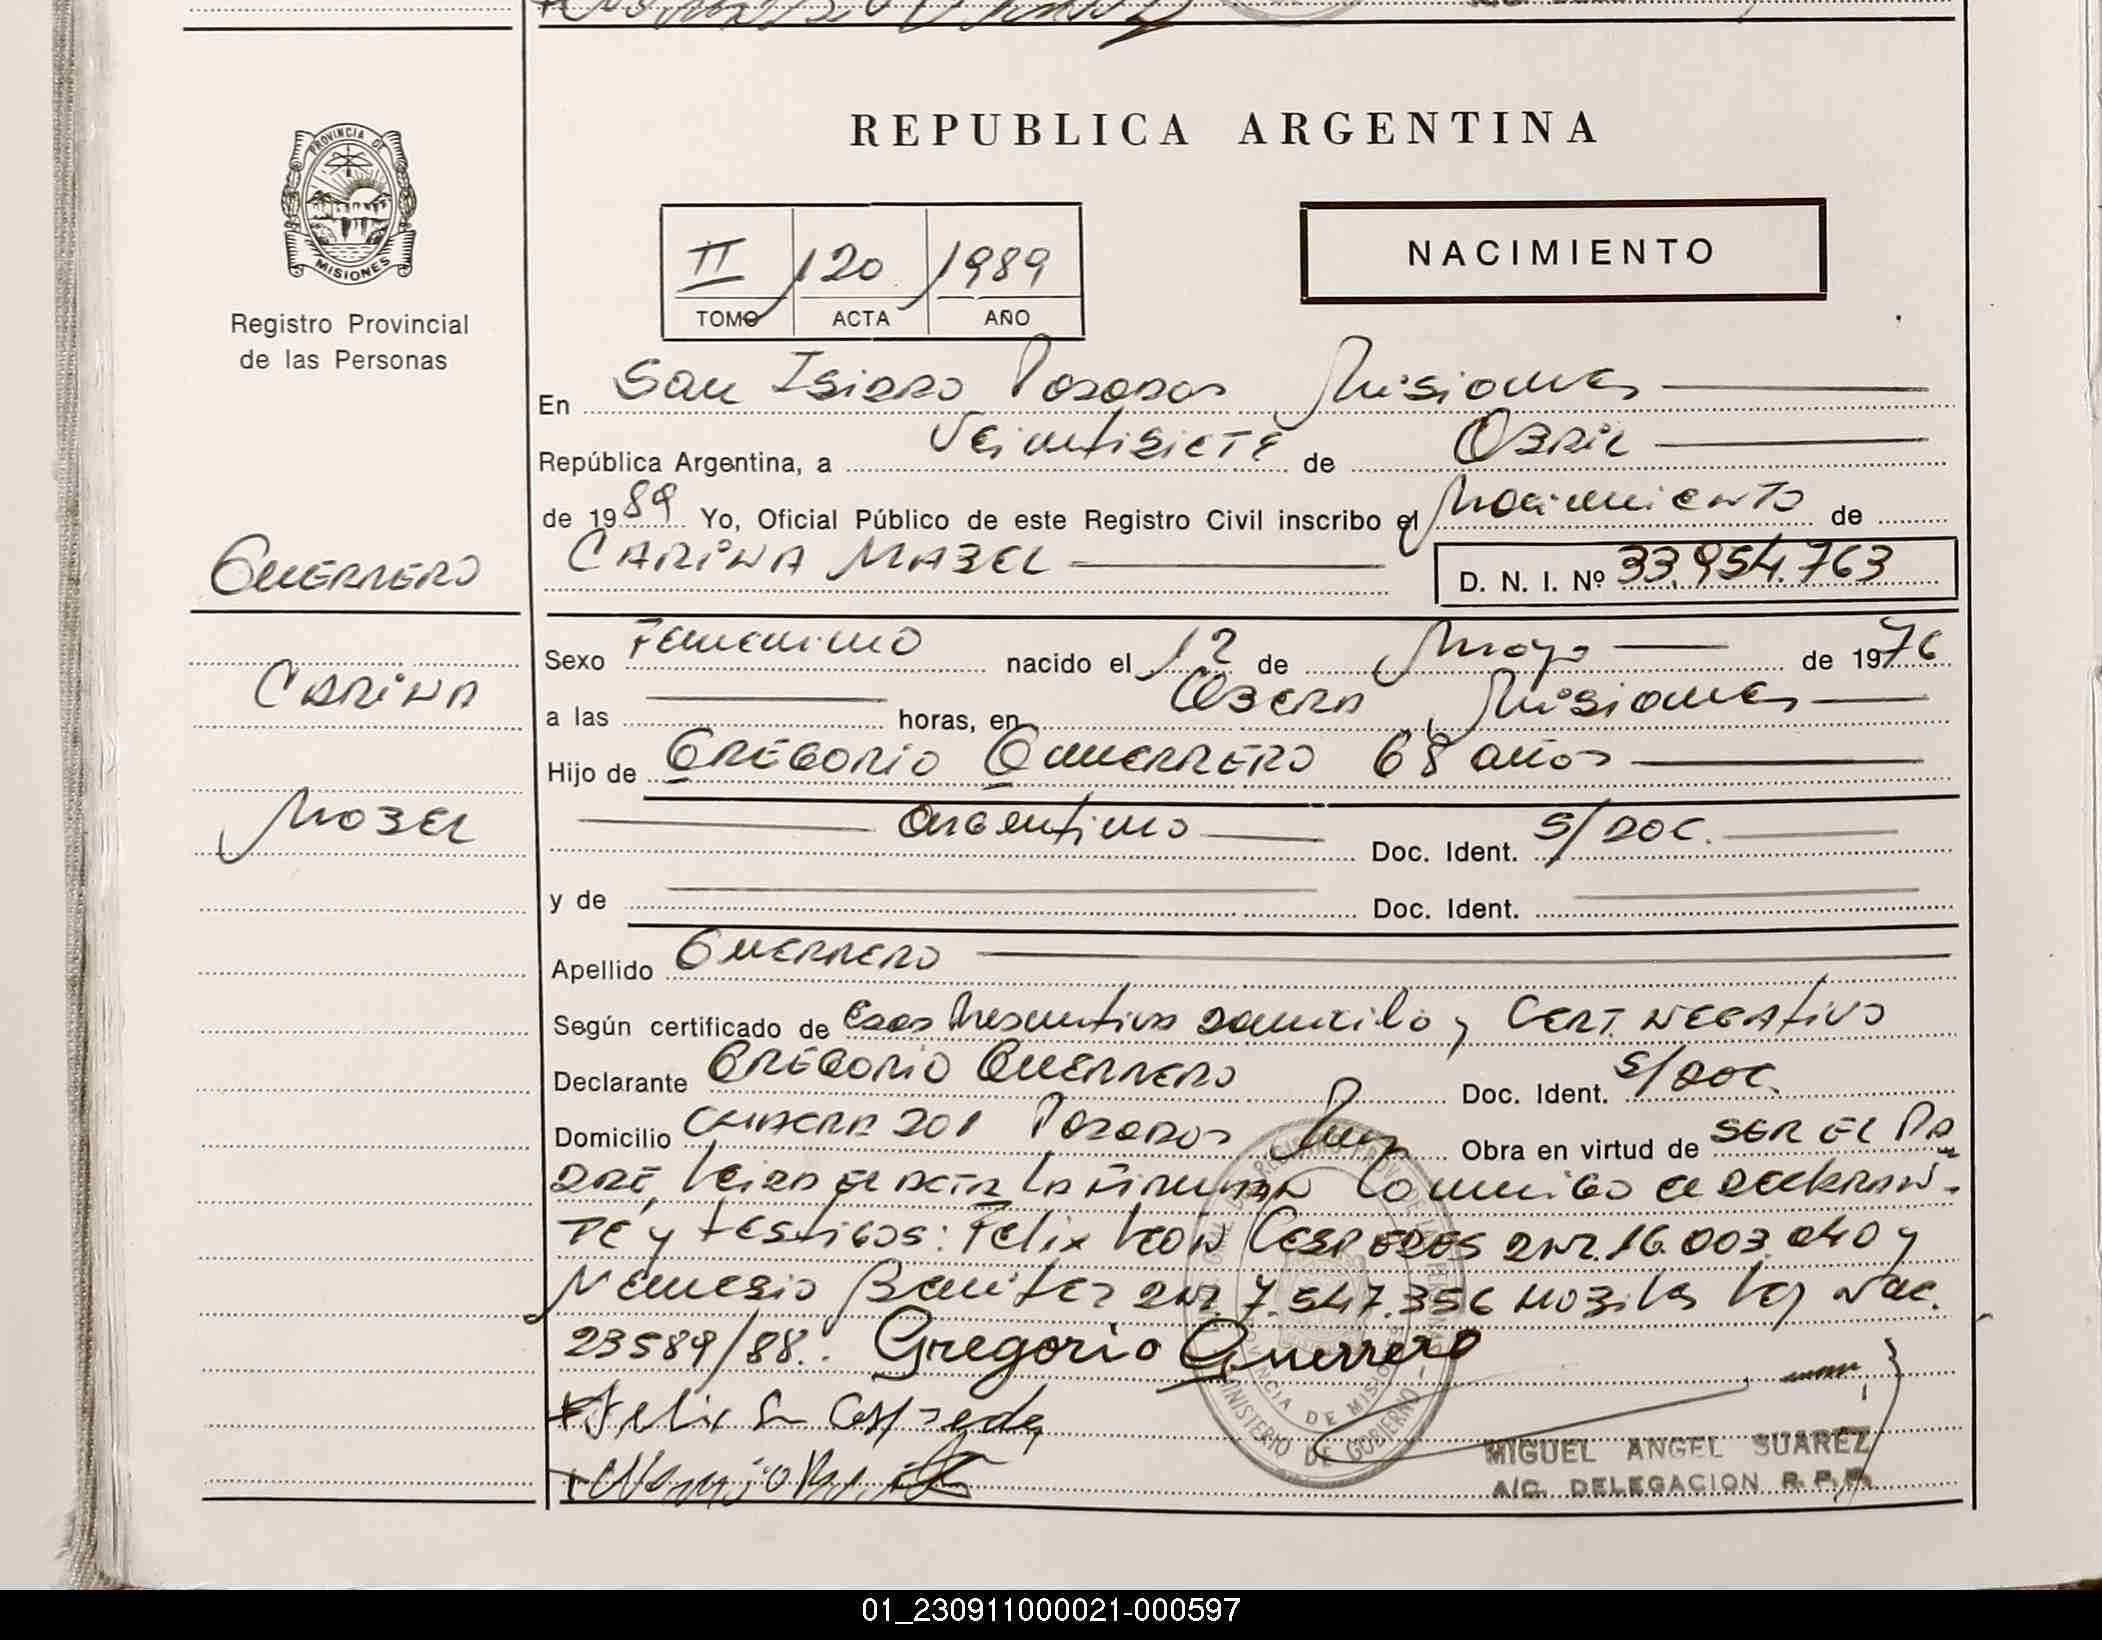 REPUBLICA ARGENTINA
PROVINCIA DE
MISIONES
Registro Provincial
de las Personas
II 120 1989
TOMO ACTA AÑO
NACIMIENTO
En San Isidro Posadas Misiones
República Argentina, a Veintisiete de Abril
de 1989 Yo, Oficial Público de este Registro Civil inscribo el Nacimiento de
CARINA MABEL D. N. I. Nº 33.954.763
GUERRERO
CARINA
MABEL
Sexo Femenino nacido el 12 de Mayo de 1976
a las horas, en Obera Misiones
Hijo de GREGORIO GUERRERO 68 años
Argentino Doc. Ident. S/DOC.
y de Doc. Ident.
Apellido GUERRERO
Según certificado de domicilio y CERT. NEGATIVO
Declarante GREGORIO GUERRERO Doc. Ident. S/DOC.
Domicilio CHACRA 201 Posadas Obra en virtud de SER EL PA
DRE, Leida el acta la firman Conmigo el declaran-
TE y testigos: Felix Leon Cespedes DNI. 16.003.040 y
Nemesio Benitez DNI. 7.547.356 Ley Nac.
23589/88. Gregorio Guerrero
MINISTERIO DE GOBIERNO
PROVINCIA DE MISIONES
MIGUEL ANGEL SUAREZ
A/C. DELEGACION R.P.P.
01_230911000021-000597